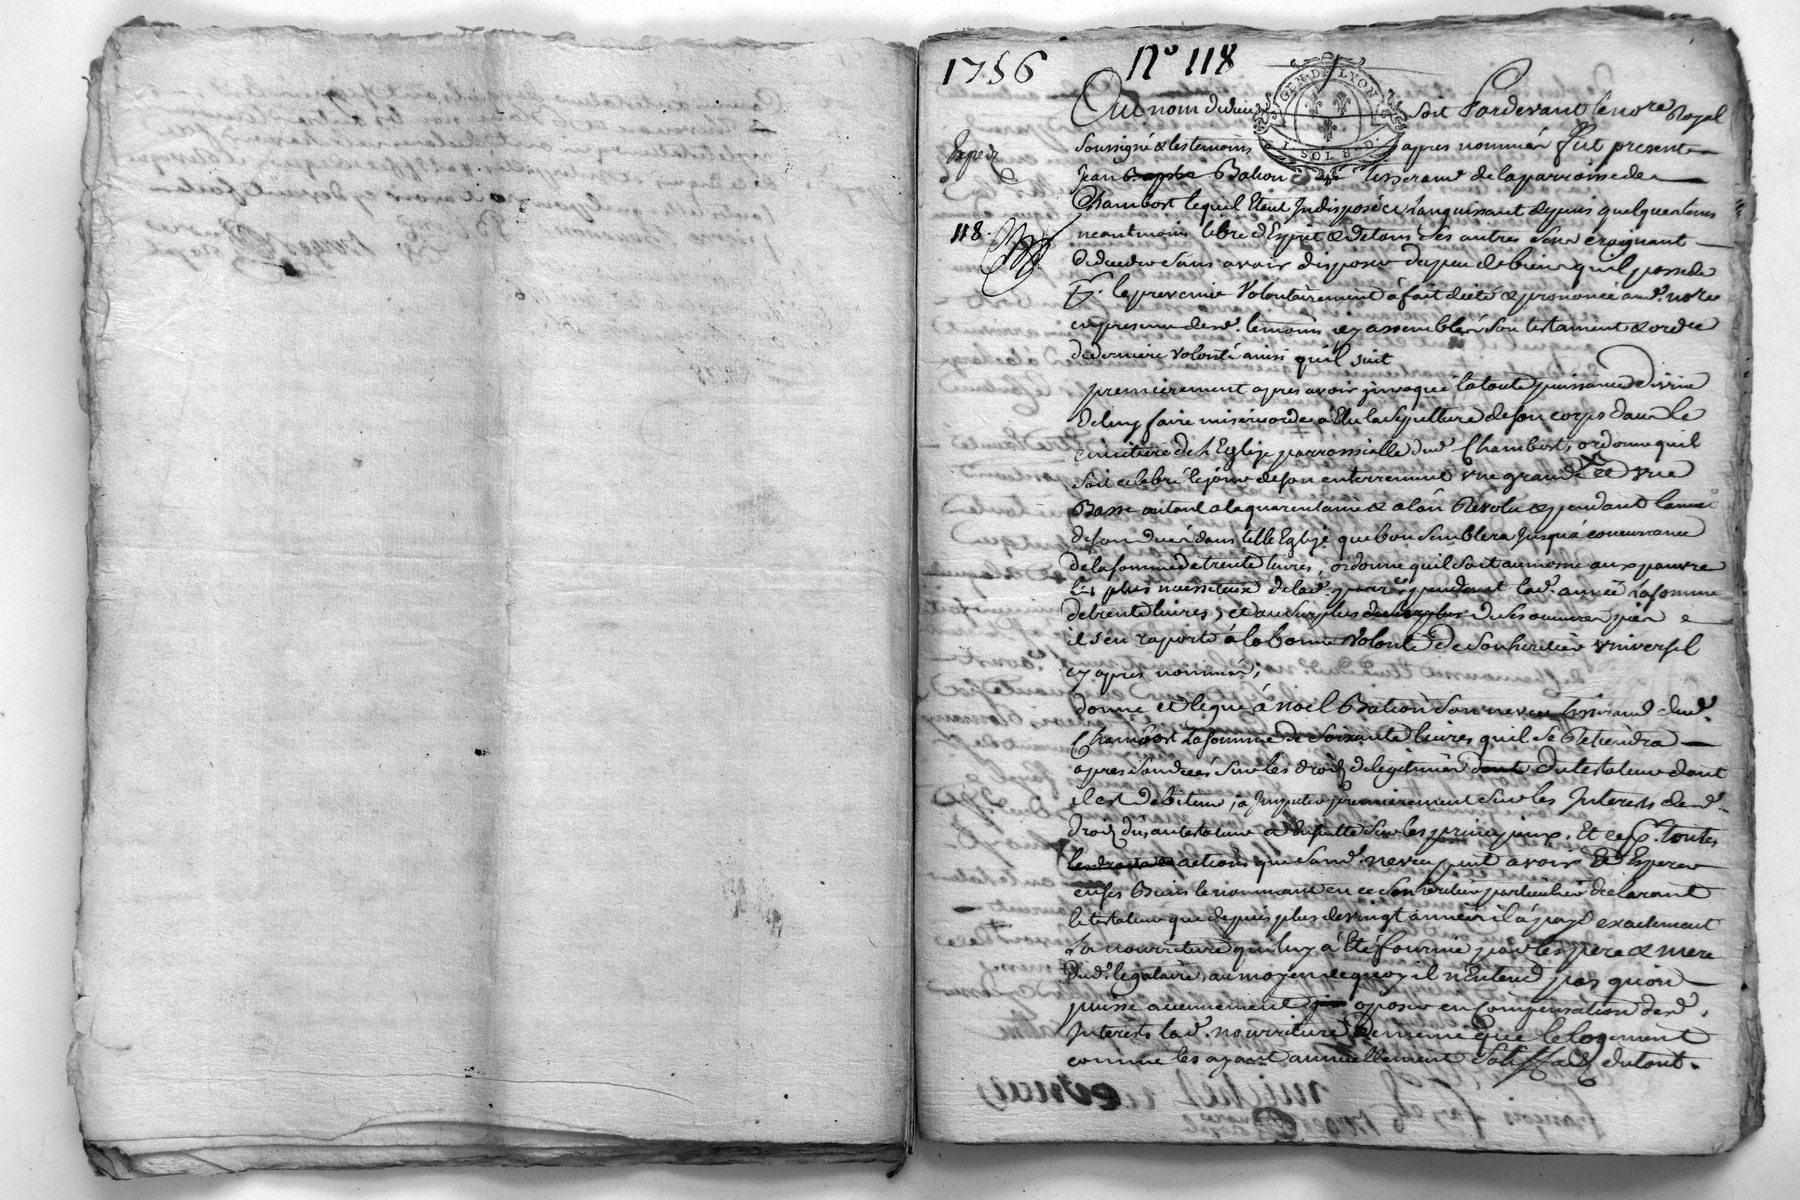 1756
N° 118
GEN. DE LYON
1. SOL 8. D.
Au nom de dieu soit Pardevant le no.re Royal
Expedié
soussigné & les temoins apres nommés fut present
Jean Bation tisserand de la parroisse de
Chambost lequel Etant Indisposé & Languissant depuis quelque tems
118.
neantmoins libre d'Esprit & de tous ses autres sens craignant
de deceder sans avoir disposer du peu de bien qu'il possede
le prevenir Volontairement à fait dicté & prononcé aud. no.re
en presence desd. temoins icy assemblés son testament & ordre
de derniere volonté ainsi qu'il suit
premierement apres avoir invoqué la toute puissance divine
de luy faire misericorde a Elu la sepulture de son corps dans le
cimitiere de l'Eglise parroissialle dud. Chambost, ordonne quil
soit celebré le jour de son enterrement une grande et une
Basse autant a la quarentaine & a l'an Revolu & pendant l'année
de son deces dans telle Eglise que bon semblera Jusqu'a concurrance
de la somme de trente livres, ordonne quil soit aumosné aux pauvre
les plus necessiteux de lad. parr.e pendant lad. année La somme
de trente livres, et au surplus de ses oeuvres pies
il s'en raporte à la bonne volonté de son heritier universel
cy apres nommé;
donne et legue à noel Bation son neveu tisserand dud.
Chambost La somme de soixante livres quil se Retiendra
apres son deces sur les droits de legitimes du testateur dont
il est debiteur, a Imputer premierement sur les Interests desd.
droits dus au testateur & ensuitte sur les principaux. Et ce p. toutes
les droits & actions que sond. neveu peut avoir Et Esperer
en ses Biens le nommant en ce son heritier particulier declarant
le testateur que depuis plus de vingt années il à payé exactement
la nourriture qui luy à Eté fournie par les pere & mere
dud. legataire, au moyen de quoy il n'Entend pas quon
puisse aucunement oposer en Compensation desd.
Interests lad. nourriture de meme que le logement
comme les ayant annuellement satisfaits du tout.